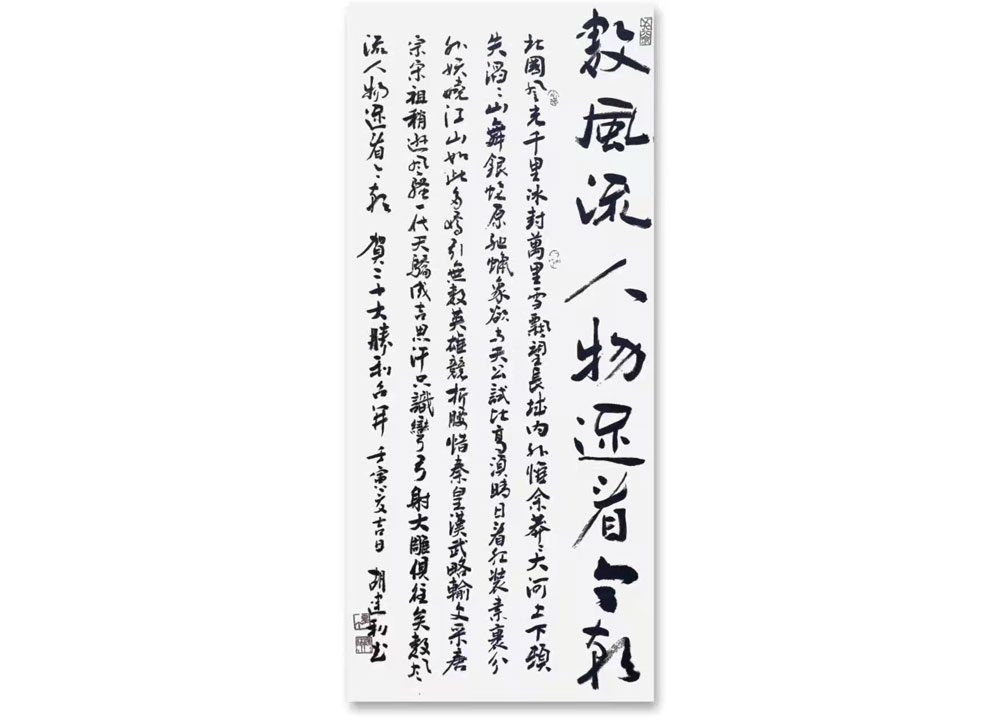 數風流人物还看今朝
北國风光千里冰封萬里雪飄望長城内外惟余莽々大河上下頓
失滔々山舞銀蛇原驰蠟象欲与天公試比高須晴日看红装素裹分
外妖嬈江山如此多嬌引無数英雄競折腰惜秦皇漢武略輸文采唐
宗宋祖稍逊风騷一代天驕成吉思汗只識彎弓射大雕俱往矣数风
流人物还看今朝 賀二十大勝利召开 壬寅夏吉日 胡建利书